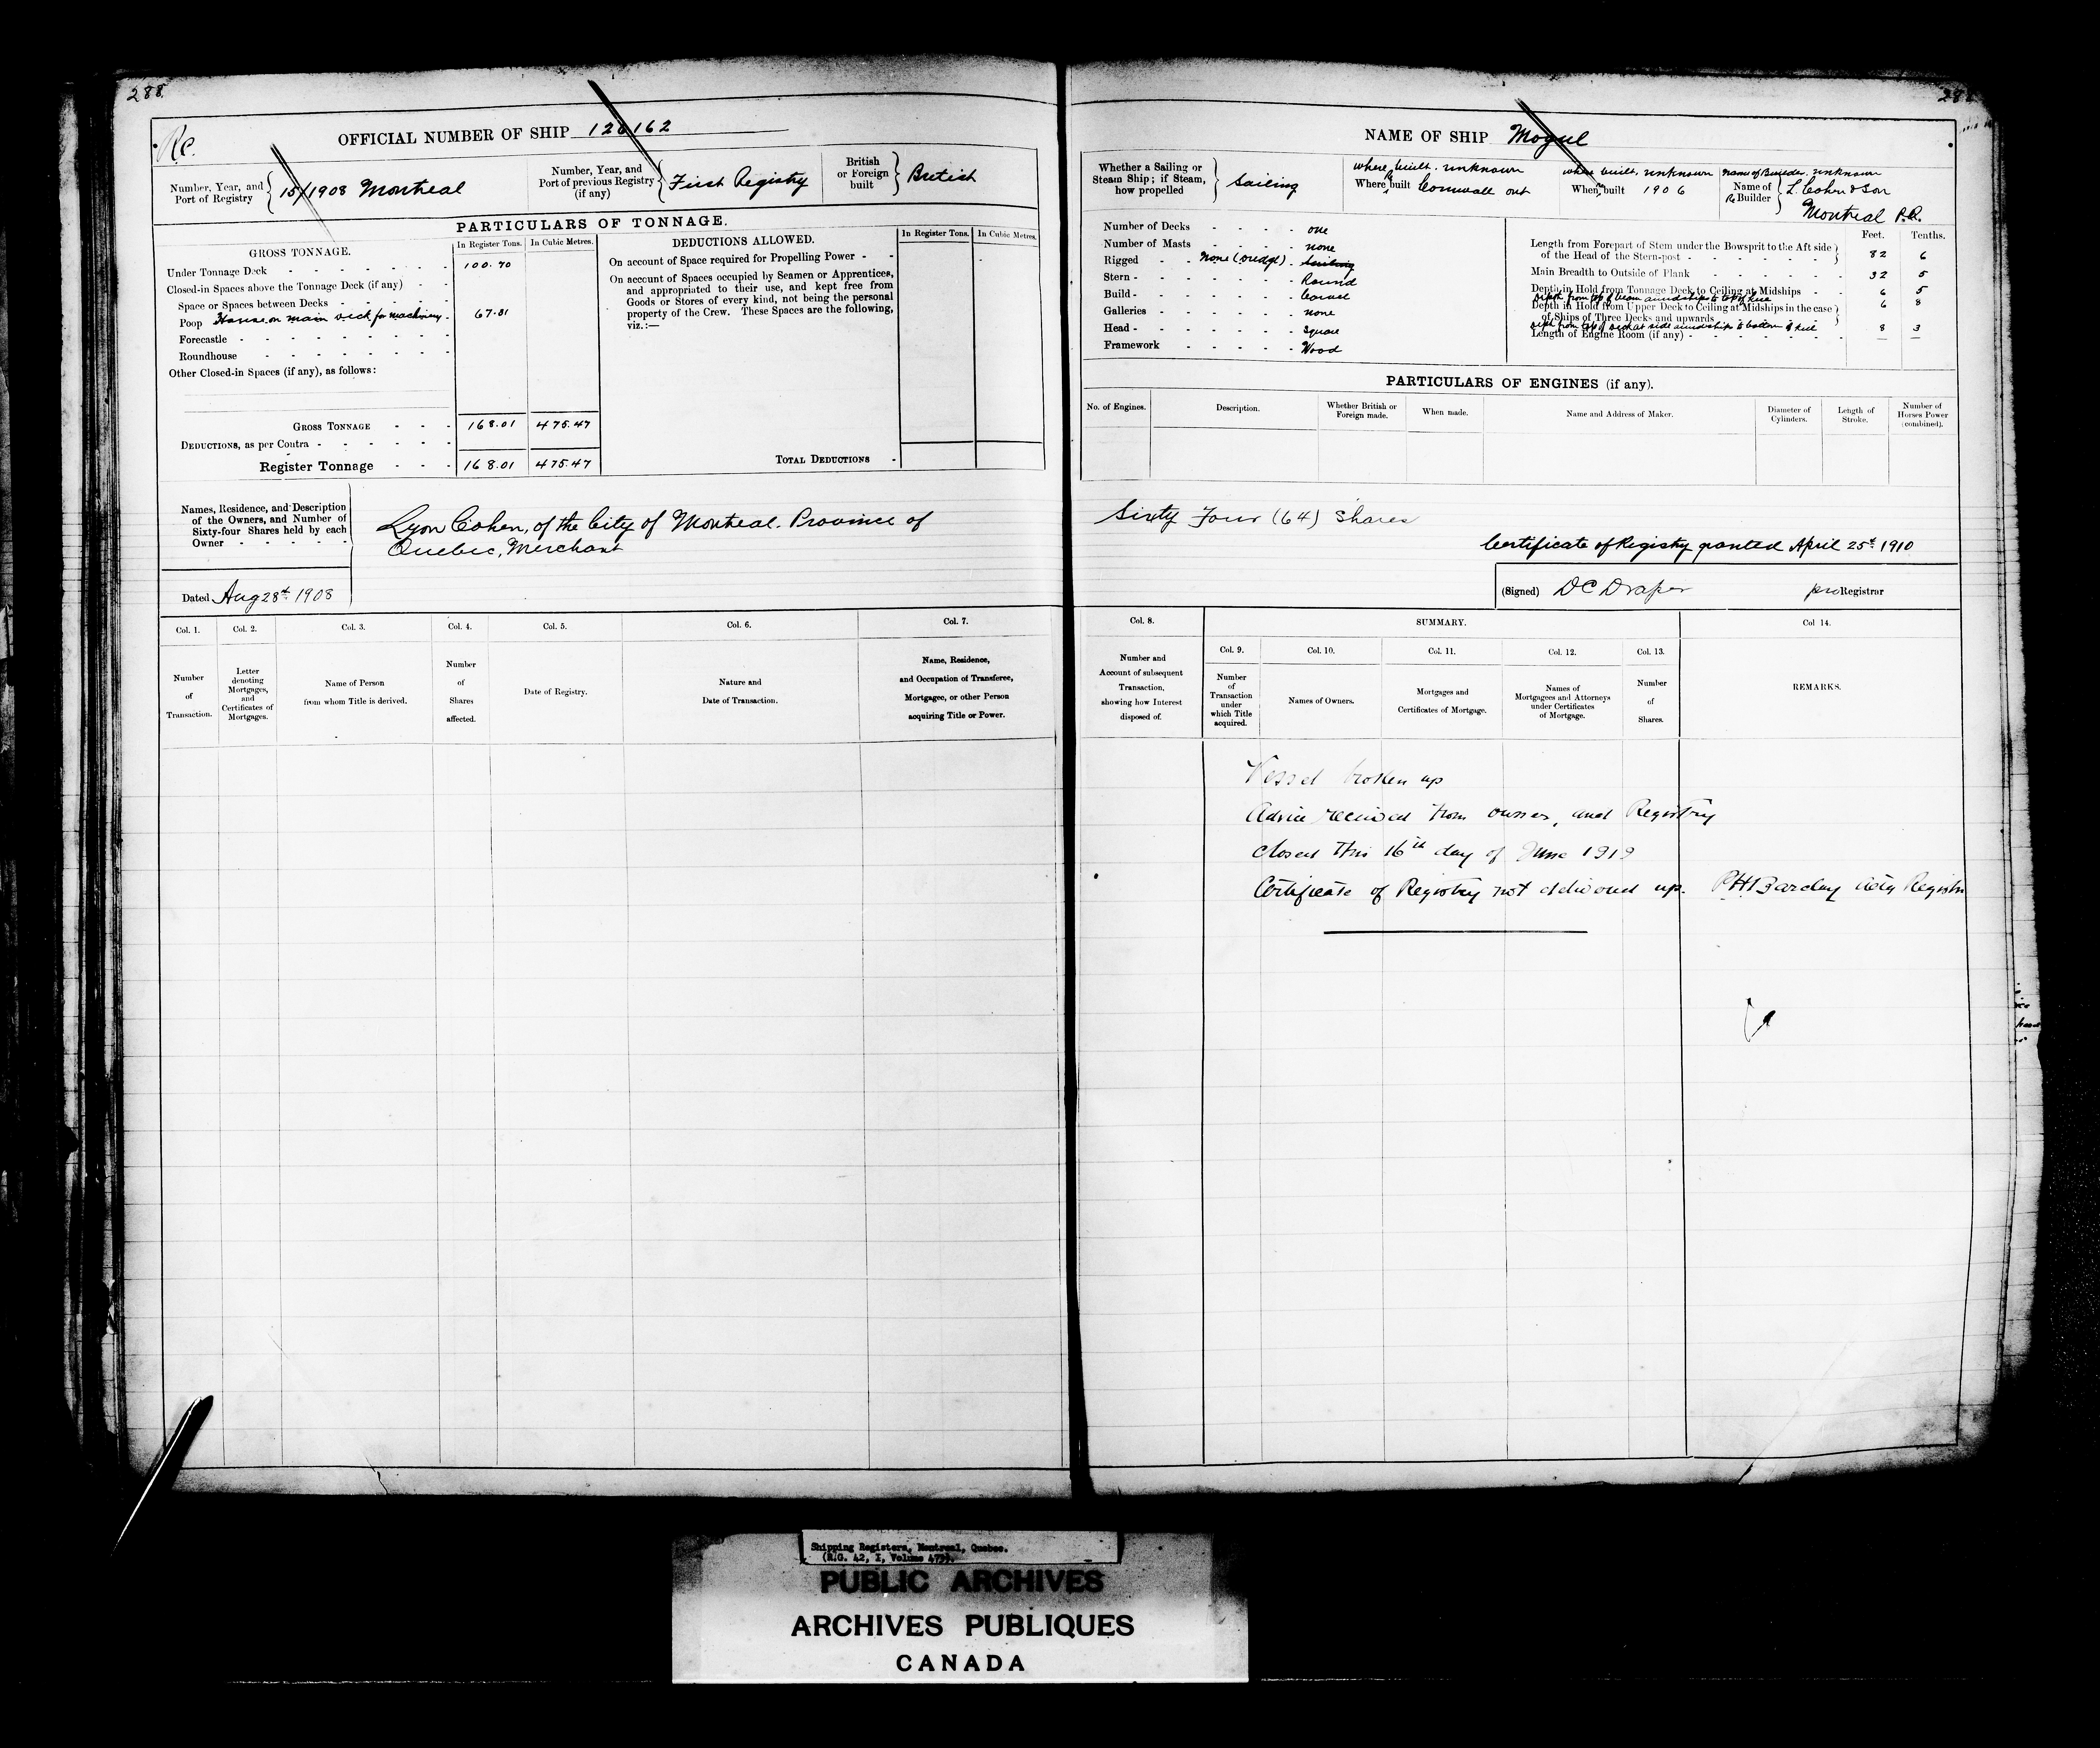 288
Re.
OFFICIAL NUMBER OF SHIP 126162
Number, Year, and Port of Registry 15/1908 Montreal
Number, Year, and Port of previous Registry (if any) First Registry
British or Foreign built British
PARTICULARS OF TONNAGE.
GROSS TONNAGE.
In Register Tons. In Cubic Metres.
Under Tonnage Deck 100.70
Closed-in Spaces above the Tonnage Deck (if any)
Space or Spaces between Decks
Poop House on main deck for machinery 67.31
Forecastle
Roundhouse
Other Closed-in Spaces (if any), as follows:
GROSS TONNAGE 168.01 475.47
DEDUCTIONS, as per Contra
Register Tonnage 168.01 475.47
DEDUCTIONS ALLOWED.
In Register Tons. In Cubic Metres.
On account of Space required for Propelling Power
On account of Spaces occupied by Seamen or Apprentices,
and appropriated to their use, and kept free from
Goods or Stores of every kind, not being the personal
property of the Crew. These Spaces are the following,
viz.:—
TOTAL DEDUCTIONS
Names, Residence, and Description
of the Owners, and Number of
Sixty-four Shares held by each
Owner
Lyon Cohen, of the City of Montreal. Province of
Quebec, Merchant
Dated Aug 28th 1908
Col. 1. Col. 2. Col. 3. Col. 4. Col. 5. Col. 6. Col. 7.
Number of Transaction.
Letter denoting Mortgages, and Certificates of Mortgages.
Name of Person from whom Title is derived.
Number of Shares affected.
Date of Registry.
Nature and Date of Transaction.
Name, Residence, and Occupation of Transferee, Mortgagee, or other Person acquiring Title or Power.
NAME OF SHIP Mogul
Whether a Sailing or Steam Ship; if Steam, how propelled Sailing
where built. unknown
Where Re built Cornwall Ont
when built, unknown
When Re built 1906
Name of Builder. unknown
Name of Re Builder L. Cohen & Son
Montreal P.Q.
Number of Decks one
Number of Masts none
Rigged None (dredge) Sailing
Stern Round
Build Carvel
Galleries none
Head Square
Framework Wood
Feet. Tenths.
Length from Forepart of Stem under the Bowsprit to the Aft side
of the Head of the Stern-post 82 6
Main Breadth to Outside of Plank 32 5
Depth in Hold from Tonnage Deck to Ceiling at Midships 6 5
Depth from top of beam amidships to top of keel
Depth in Hold from Upper Deck to Ceiling at Midships in the case 6 8
of Ships of Three Decks and upwards
Depth from top of deck at side amidships to bottom of keel 8 3
Length of Engine Room (if any) — —
PARTICULARS OF ENGINES (if any).
No. of Engines. Description. Whether British or Foreign made. When made. Name and Address of Maker. Diameter of Cylinders. Length of Stroke. Number of Horses Power (combined).
Sixty Four (64) Shares
Certificate of Registry granted April 25th 1910
(Signed) DC Draper pro Registrar
Col. 8. SUMMARY. Col 14.
Col. 9. Col. 10. Col. 11. Col. 12. Col. 13.
Number and Account of subsequent Transaction, showing how Interest disposed of.
Number of Transaction under which Title acquired.
Names of Owners.
Mortgages and Certificates of Mortgage.
Names of Mortgagees and Attorneys under Certificates of Mortgage.
Number of Shares.
REMARKS.
Vessel broken up
Advice received from owner, and Registry
closed this 16th day of June 1919
Certificate of Registry not delivered up. PH Barclay Actg Registrar
Shipping Registers, Montreal, Quebec.
PUBLIC ARCHIVES
ARCHIVES PUBLIQUES
CANADA